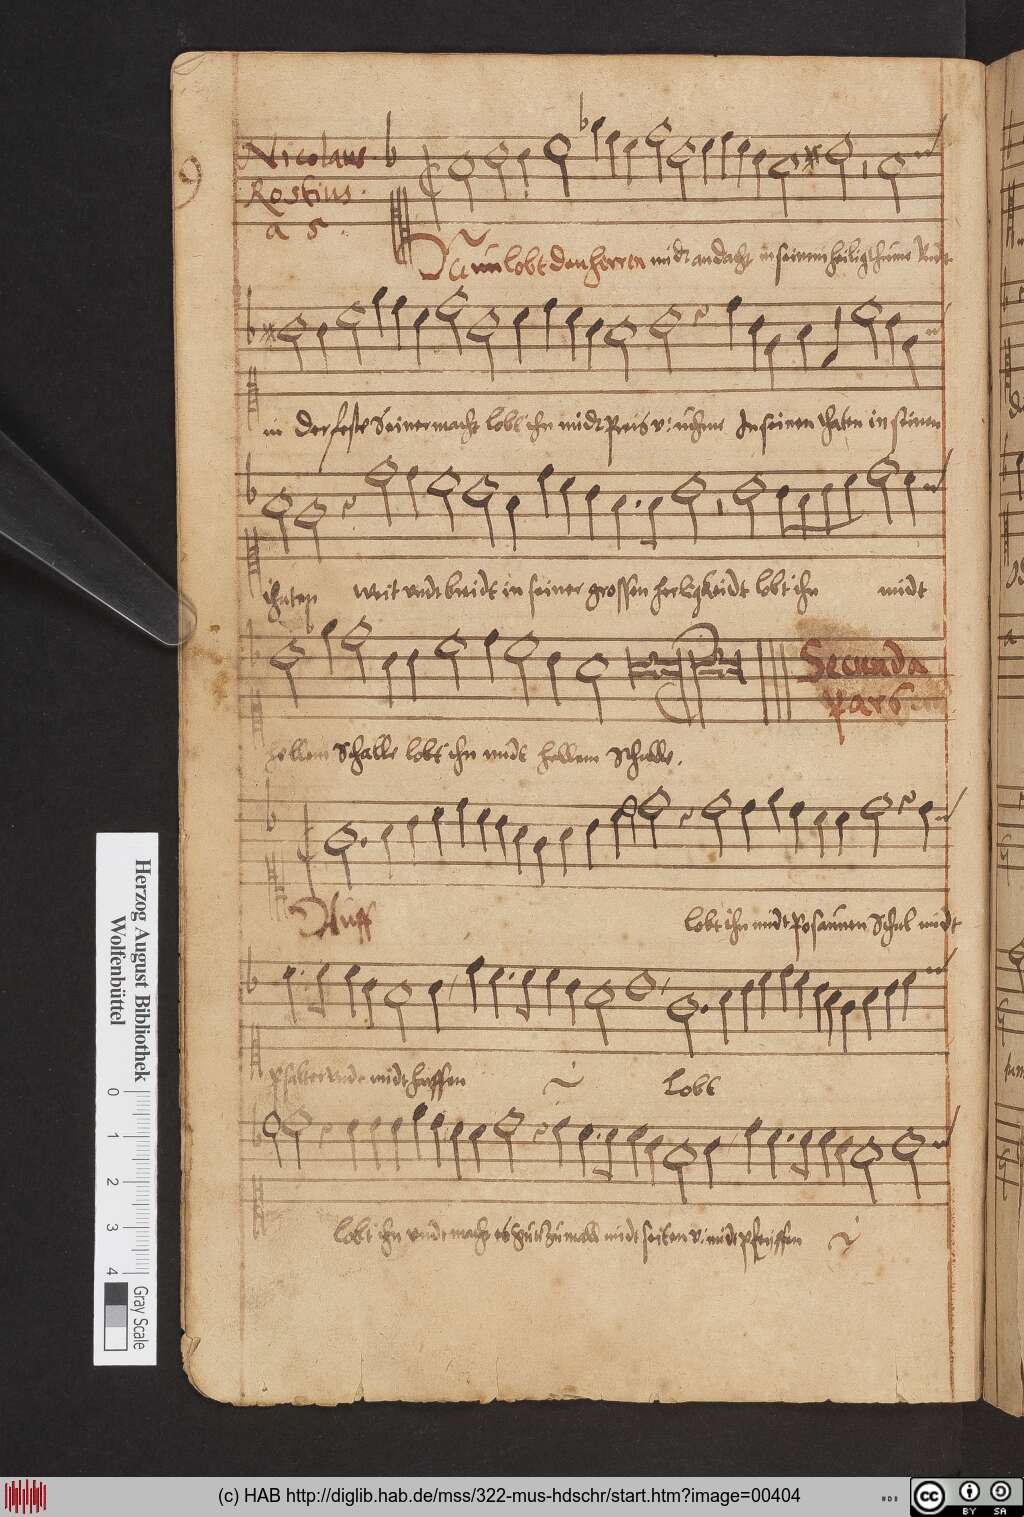 9
Nicolaus
Rostius.
a 5.
Nun lobt den herren midt andacht in seinem heiligthume Undt
in der feste Seiner macht lobt ihn midt Preis v: ruhme In seinen thaten in seinen
thaten weit undt breidt in seiner grossen herligkeidt lobt ihn midt
hellem Schalle lobt ihn midt hellem Schalle.
Secunda
Pars
Auff
lobt ihn midt Posaunen Schal midt
Psalter undt midt harffen Lobt
lobt ihn undt macht midt seiten v: midt pfeiffen
Herzog August Bibliothek
Wolfenbüttel
0 1 2 3 4
Gray Scale
(c) HAB http://diglib.hab.de/mss/322-mus-hdschr/start.htm?image=00404
cc BY SA